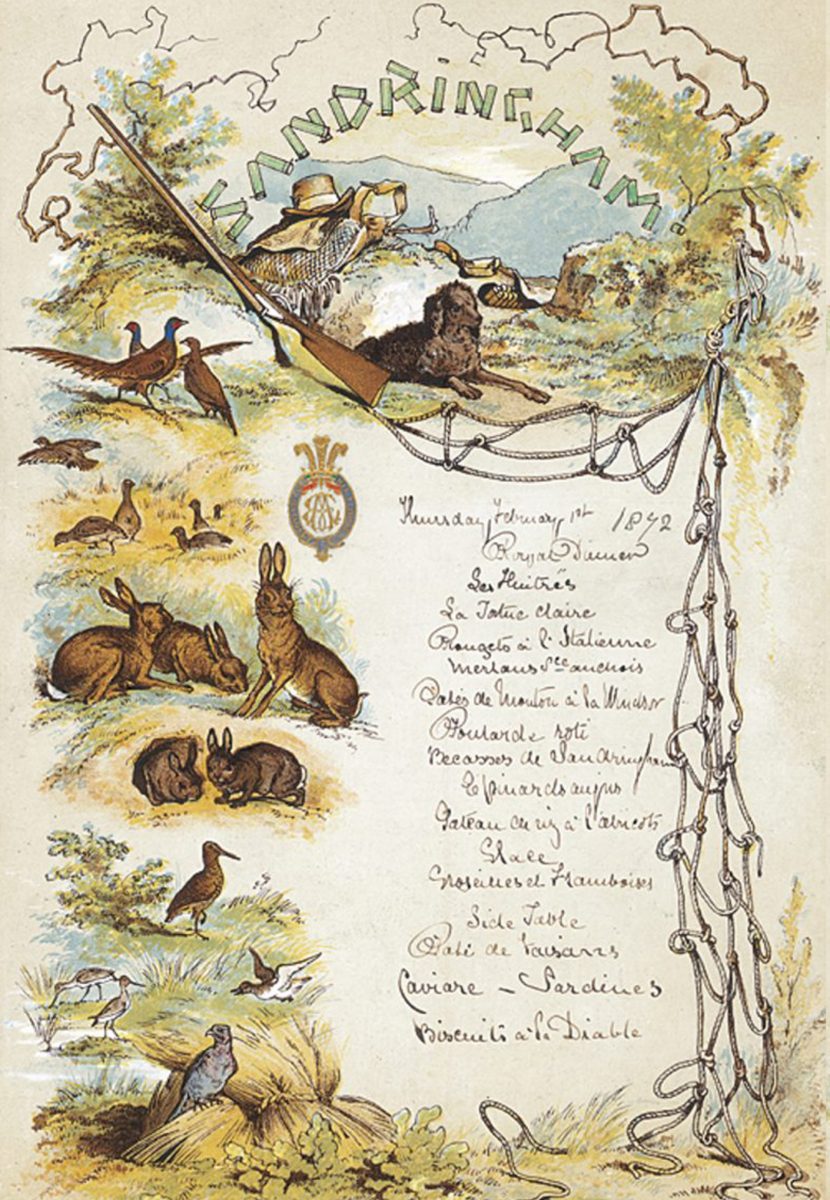 SANDRINGHAM.
Thursday, February, 1st 1872
Royal Dinner
Les Huitres
La Tortue claire
Rougets à l'Italienne
Merlans Sce anchois
Patés de Mouton à la Windsor
Poularde roti
Becasses de Sandringham
Epinards au jus
Gateau de riz à l'abricots
Glace
Groseilles et Framboises
Side Table
Paté de Faisans
Caviare - Sardines
Biscuits à la Diable